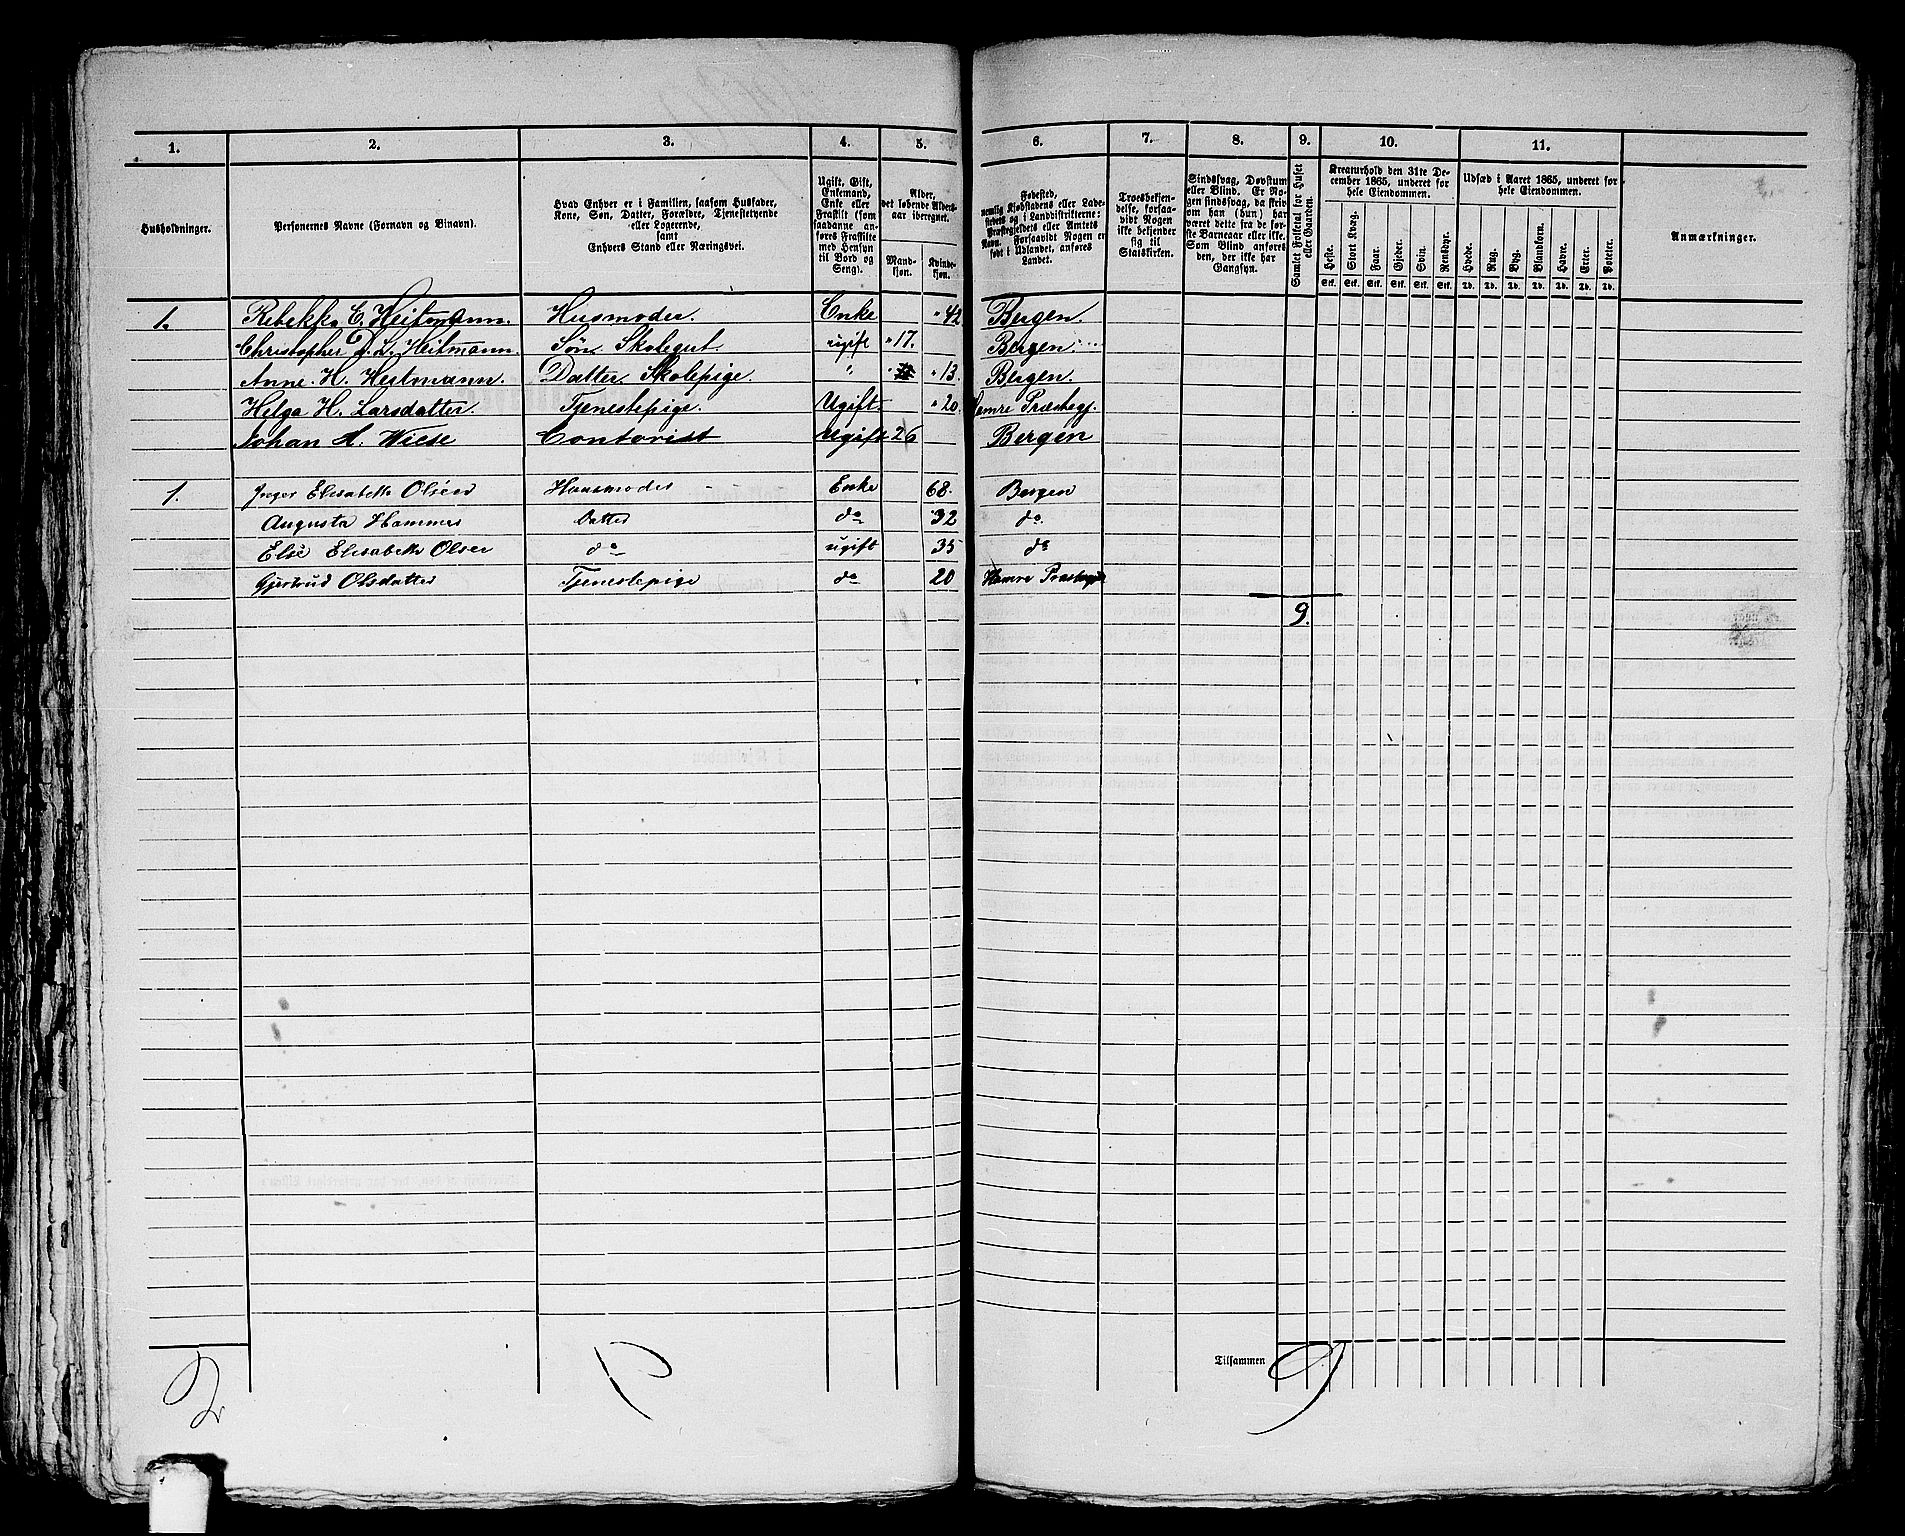 1. 2. 3. 4. 5. 6. 7. 8. 9. 10. 11.
Husholdninger.
Personernes Navne (Fornavn og Binavn).
Hvad Enhver er i Familien, saasom Husfader,
Kone, Søn, Datter, Forældre, Tjenestetyende
eller Logerende,
samt
Enhvers Stand eller Næringsvei.
Ugift, Gift,
Enkemand,
Enke eller
Fraskilt (som
saadanne an-
føres Fraskilte
med Hensyn
til Bord og
Seng).
Alder,
det løbende Alders-
aar iberegnet.
Mand-
kjøn.
Kvinde-
kjøn.
Fødested,
nemlig Kjøbstadens eller Lade-
stedets og i Landdistrikterne:
Præstegjeldets eller Amtets
Navn. Forsaavidt Nogen er
født i Udlandet, anføres
Landet.
Troesbekjen-
delse, forsaa-
vidt Nogen
ikke bekjender
sig til
Statskirken.
Sindssvag, Døvstum
eller Blind. Er No-
gen sindssvag, da skriv
om han (hun) har
været dette fra de før-
ste Barneaar eller ikke.
Som Blind anføres
den, der ikke har
Gangsyn.
Samlet Folketal for Huset
eller Gaarden.
Kreaturhold den 31te De-
cember 1865, underet for
hele Eiendommen.
Heste. Stort Kvæg. Faar. Gjeder. Svin. Rensdyr.
Stk. Stk. Stk. Stk. Stk. Stk.
Udsæd i Aaret 1865, underet for
hele Eiendommen.
Hvede. Rug. Byg. Blandkorn. Havre. Erter. Poteter.
Td. Td. Td. Td. Td. Td. Td.
Anmærkninger.
1. Rebekka C. Heitmann. Husmoder. Enke " 42 Bergen.
Christopher D. L. Heitmann. Søn. Skolegut. ugift " 17. Bergen.
Anne H. Heitmann. Datter. Skolepige. " " 13. Bergen.
Helga H. Larsdatter. Tjenestepige. Ugift. " 20. Hamre Præstegj.
Johan A. Wiese Contorist Ugift 26 Bergen
1. Inger Elisabeth Olsen Huusmoder Enke 68. Bergen
Augusta Hammer Datter do 32 do.
Else Elisabeth Olsen do ugift 35 do
Gjertrud Olsdatter Tjenestepige do 20 Hamre
9.
Tilsammen 9
2